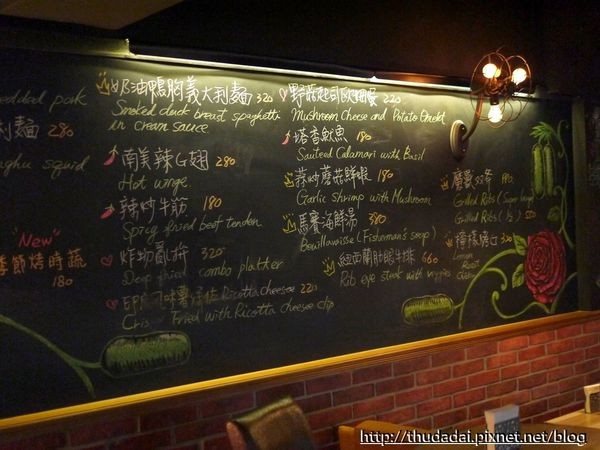 pork
利麵 280
squid
"New"
季節烤時蔬
180
奶油鴨胸義大利麵 320
Smoked duck breast spaghetti
in cream sauce
南美辣G翅 280
Hot wings
辣炒牛筋 180
Spicy fried beef tendon
炸物亂拚 320
Deep fried combo platter
Ricotta cheese 220
Fried with Ricotta cheese dip
野菇起司歐姆蛋 220
Mushroom Cheese and Potato
塔香魷魚 180
Sauteed Calamari with Basil
蒜炒蘑菇鮮蝦 180
Garlic Shrimp with Mushroom
馬賽海鮮湯 380
Bouillavaisse (Fisherman's soup)
紐西蘭肋眼牛排 660
Rib eye steak with veggies
Grilled Ribs
Grilled Ribs (½) 500
320
Lemon
Roast
http://thudadai.pixnet.net/blog